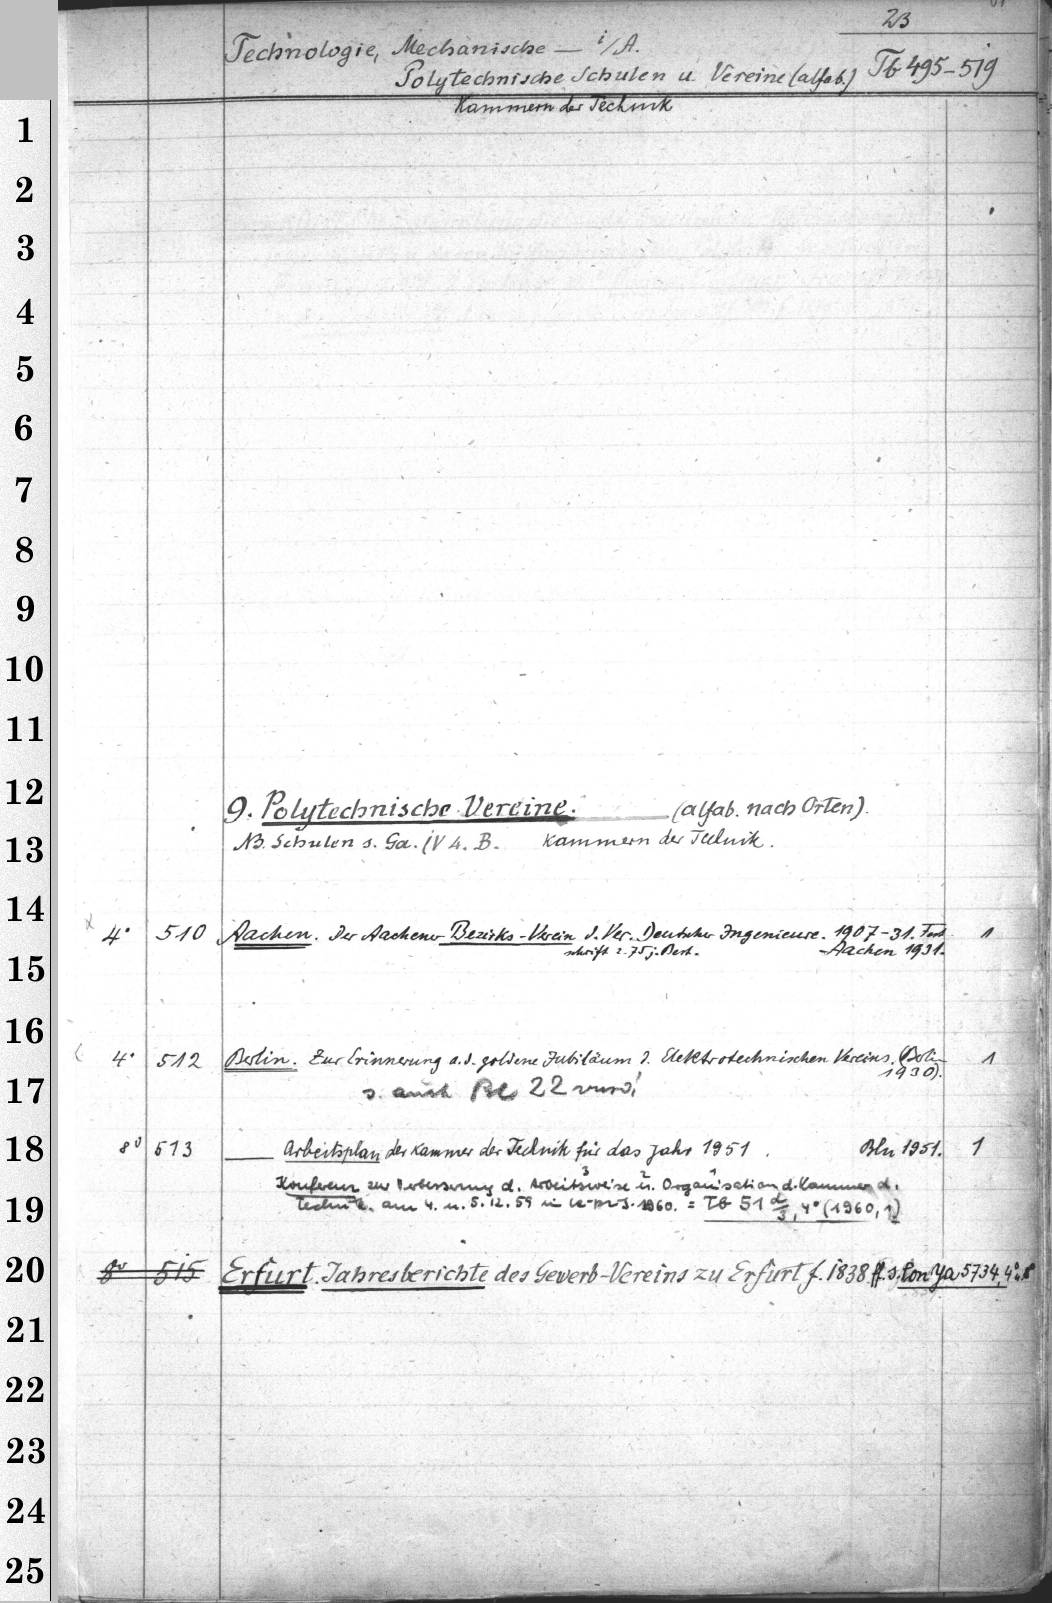 23
Technologie, Mechanische — i/A.
Polytechnische Schulen u. Vereine (alfab.) Tb 495-519
Kammern der Technik
1
2
3
4
5
6
7
8
9
10
11
12
9. Polytechnische Vereine. (alfab. nach Orten).
13
NB. Schulen s. Ga. IV 4. B. Kammern der Technik.
14
4° 510 Aachen. Der Aachener Bezirks-Verein d. Ver. Deutscher Ingenieure. 1907-31. Fest 1
schrift z. 75j. Best. Aachen 1931.
15
16
4° 512 Berlin. Zur Erinnerung a. d. goldene Jubiläum d. Elektrotechnischen Vereins. (Berlin 1
1930).
17
s. auch Bl 22
18
8° 513 — Arbeitsplan der Kammer der Technik für das Jahr 1951. Bln 1951. 1
Konferenz zur Verbesserung d. Arbeitsweise u. Organisation d. Kammer d.
19
Technik. am 4. u. 5.12.59 in 1960. = Tb 51 d/3, 4° (1960,1)
20
8° 515 Erfurt. Jahresberichte des Gewerb-Vereins zu Erfurt f. 1838 ff. s. Ya 5734, 4°
21
22
23
24
25